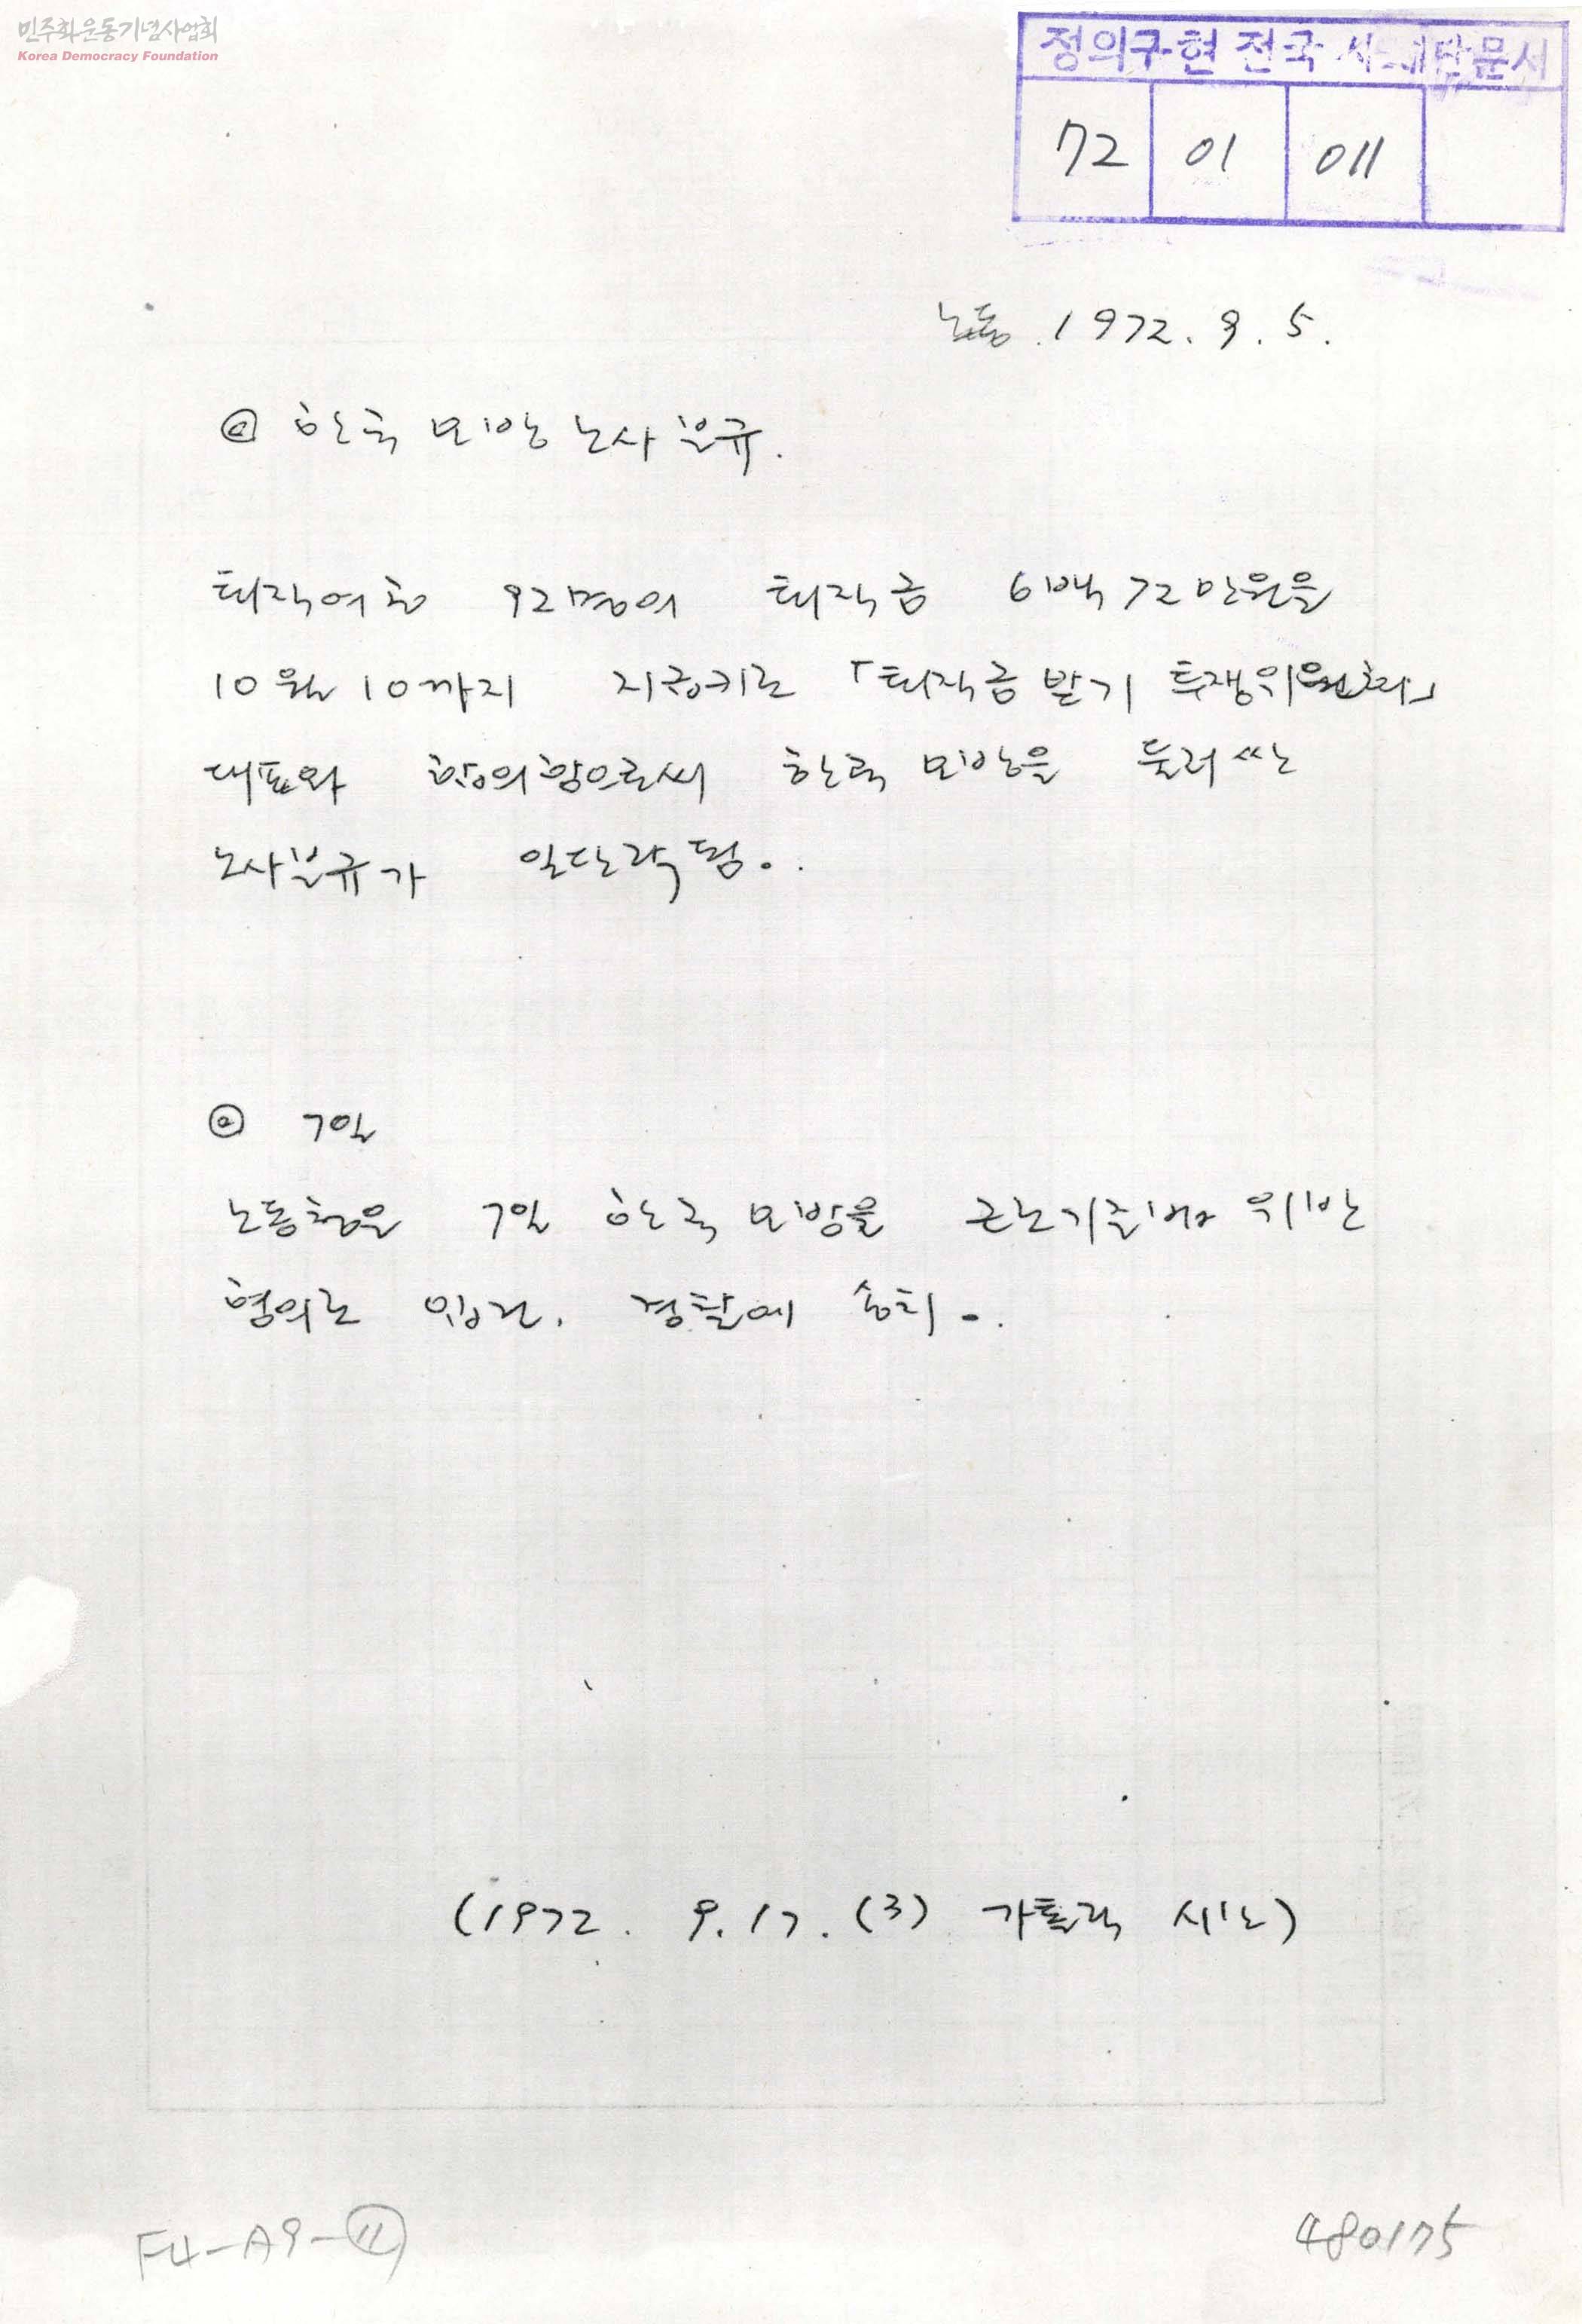 민주화운동기념사업회
Korea Democracy Foundation
정의구현 전국 사제단문서
72 01 011
노동. 1972. 9. 5.
@ 한국 모방 노사분규.
퇴직여공 92명의 퇴직금 6백72만원을
10월 10까지 지급키로 「퇴직금 받기 투쟁위원회」
대표와 합의함으로써 한국 모방을 둘러싼
노사분규가 일단락 됨.
@ 7일
노동청은 7일 한국 모방을 근로기준법 위반
혐의로 입건. 경찰에 송치-.
(1972. 9. 17. (3) 가톨릭 시보)
F4-A9-⑪
480175